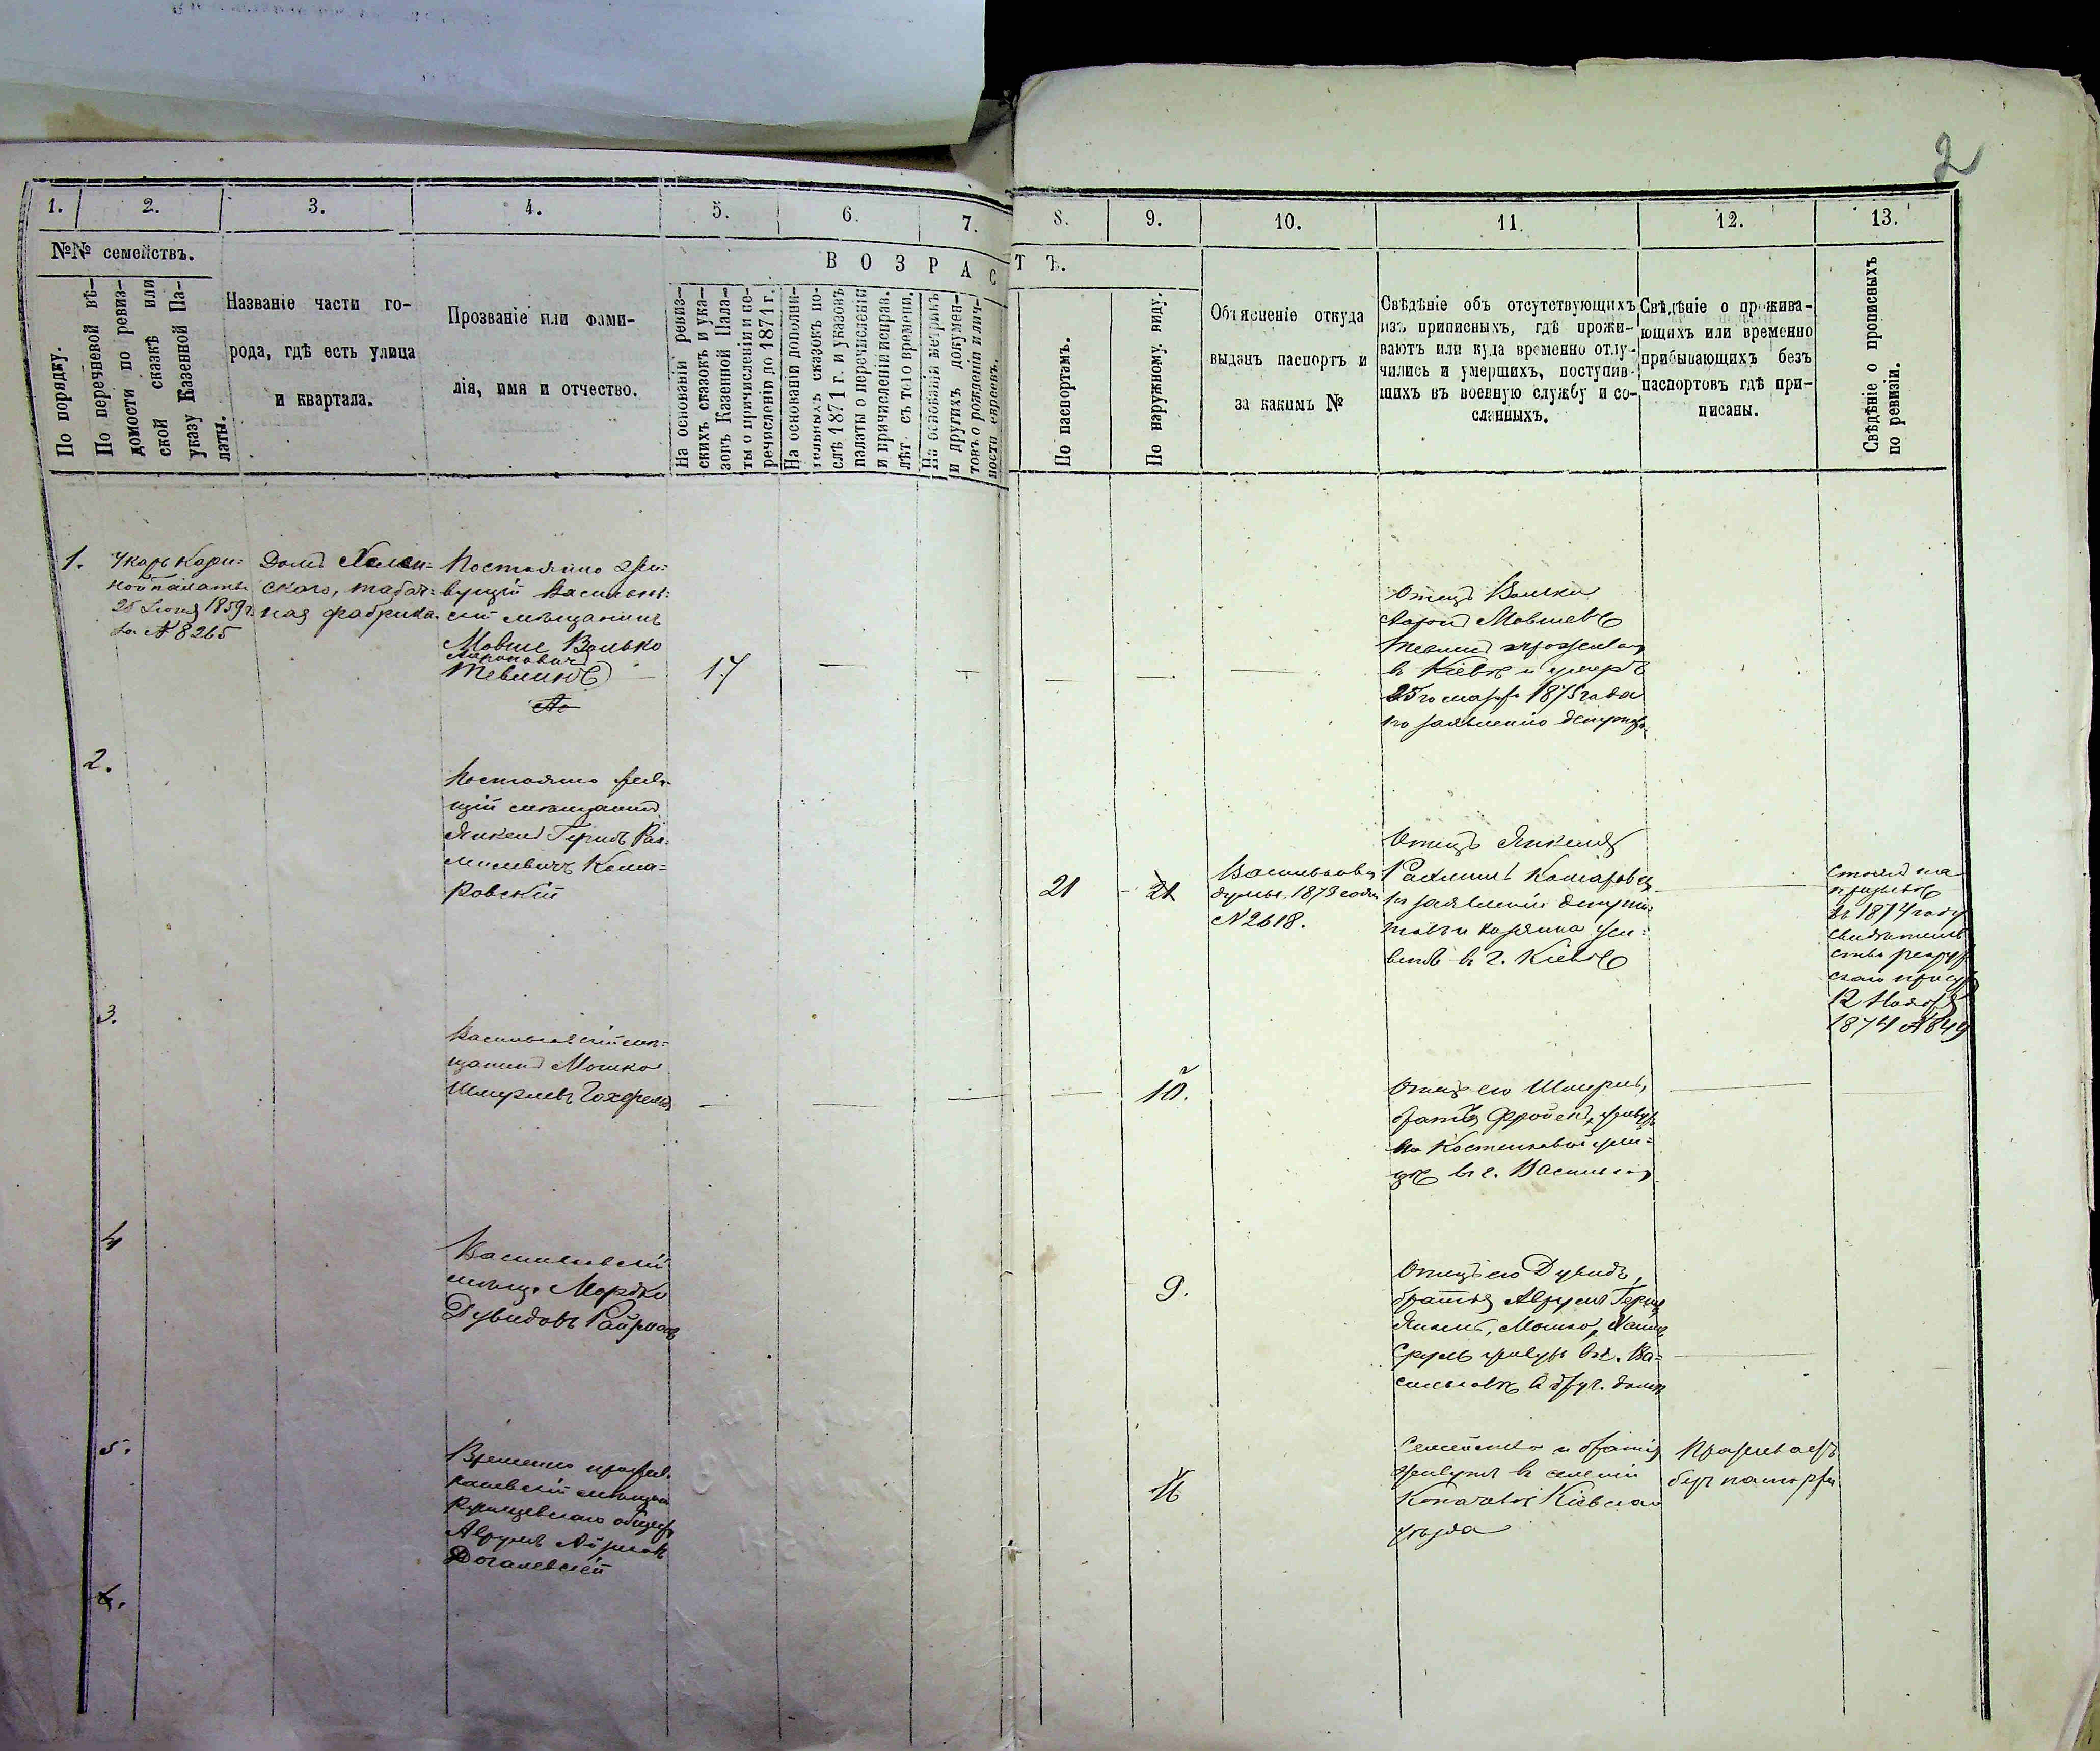 2
1.
2.
3.
4.
5.
6.
7.
8.
9.
10.
11.
12.
13.
№№ семействъ.
В О З Р А С Т Ъ.
По порядку.
По перечневой вѣ-
домости по ревиз-
ской сказкѣ или
указу Казенной Па-
латы.
Названіе части го-
рода, гдѣ есть улица
и квартала.
Прозваніе или фами-
лія, имя и отчество.
На основаніи ревиз-
скихъ сказокъ и ука-
зовъ Казенной Пала-
ты о причисленіи и пе-
речисленіи до 1871 г.
На основаніи дополни-
тельныхъ сказокъ по-
слѣ 1871 г. и указовъ
палаты о перечисленіи
и причисленіи исправ.
лѣт съ того времени.
На основаніи метрикъ
и другихъ докумен-
товъ о рожденіи и лич-
ности евреевъ.
По паспортамъ.
По наружному виду.
Объясненіе откуда
выданъ паспортъ и
за какимъ №
Свѣдѣніе объ отсутствующихъ
изъ приписныхъ, гдѣ прожи-
ваютъ или куда временно отлу-
чились и умершихъ, поступив-
шихъ въ военную службу и со-
сланныхъ.
Свѣдѣніе о прожива-
ющихъ или временно
прибывающихъ безъ
паспортовъ гдѣ при-
писаны.
Свѣдѣніе о прописныхъ
по ревизіи.
1.
Указъ
ной палаты
25 1859 г.
за № 8265
Домъ
скаго, табач-
ная фабрика.
Постоянно жи-
вущій Васильков-
скій мѣщанинъ
Мовше Волько
Ароновичъ
17
Отецъ Волька
Аронъ Мовшевъ
проживалъ
въ Кіевѣ и умеръ
25го марта 1875 года
по заявленію депутата
2.
Постоянно живу-
щій мѣщанинъ
Янкель Гершъ Рах-
милевичъ Кома-
ровскій
21
21
Васильковск
думы 1873 года
№ 2618.
Отецъ Янкеля
Рахмиль Комаровск
по заявленію депута-
товъ и хозяина жи-
ветъ в г. Кіевѣ
Стоялъ на
призывѣ
въ 1874 году
свидѣтель
ство рекрут
скаго присут
12 Ноября
1874 № 849
3.
Васильковскій мѣ-
щанинъ Мошко
Шмерлевъ
10.
Отецъ его Шмерль,
братъ Фроимъ, живутъ
на Костельной ули-
цѣ въ г. Васильк
4
Васильковскій
мѣщ. Мордко
Дувидовъ
9.
Отецъ его Дувидъ,
братья Аврумъ Гершъ
Янкель, Мошко, Хаимъ
Сруль живутъ въ г. Ва-
сильковѣ в друг. домѣ
5.
Временно прожив.
каневскій мѣщан
общест
Аврумъ
16
Семейство и братія
живутъ в селеніи
Кіевскаго
уѣзда
Проживаетъ
безъ паспорта
6.